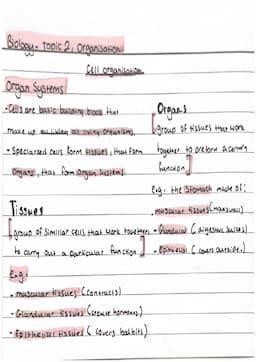 Biology - Topic 2, Organisation
Cell organisation
Organ Systems
- Cells are basic building block that
make up all living organisms.
- Specialised cells form tissues, that form
organs, that form organ systems.
Organs
[group of tissues that work
together to preform a certain
function]
e.g. the stomach made of:
- muscular tissues (moves wall)
- Glandular (digestive juices)
- Epithelial (covers outside.)
Tissues
[group of similar cells that work together
to carry out a particular function]
E.g.
- muscular tissues (contracts)
- Glandular tissues (secrete hormones)
- Epithelial tissues (covers